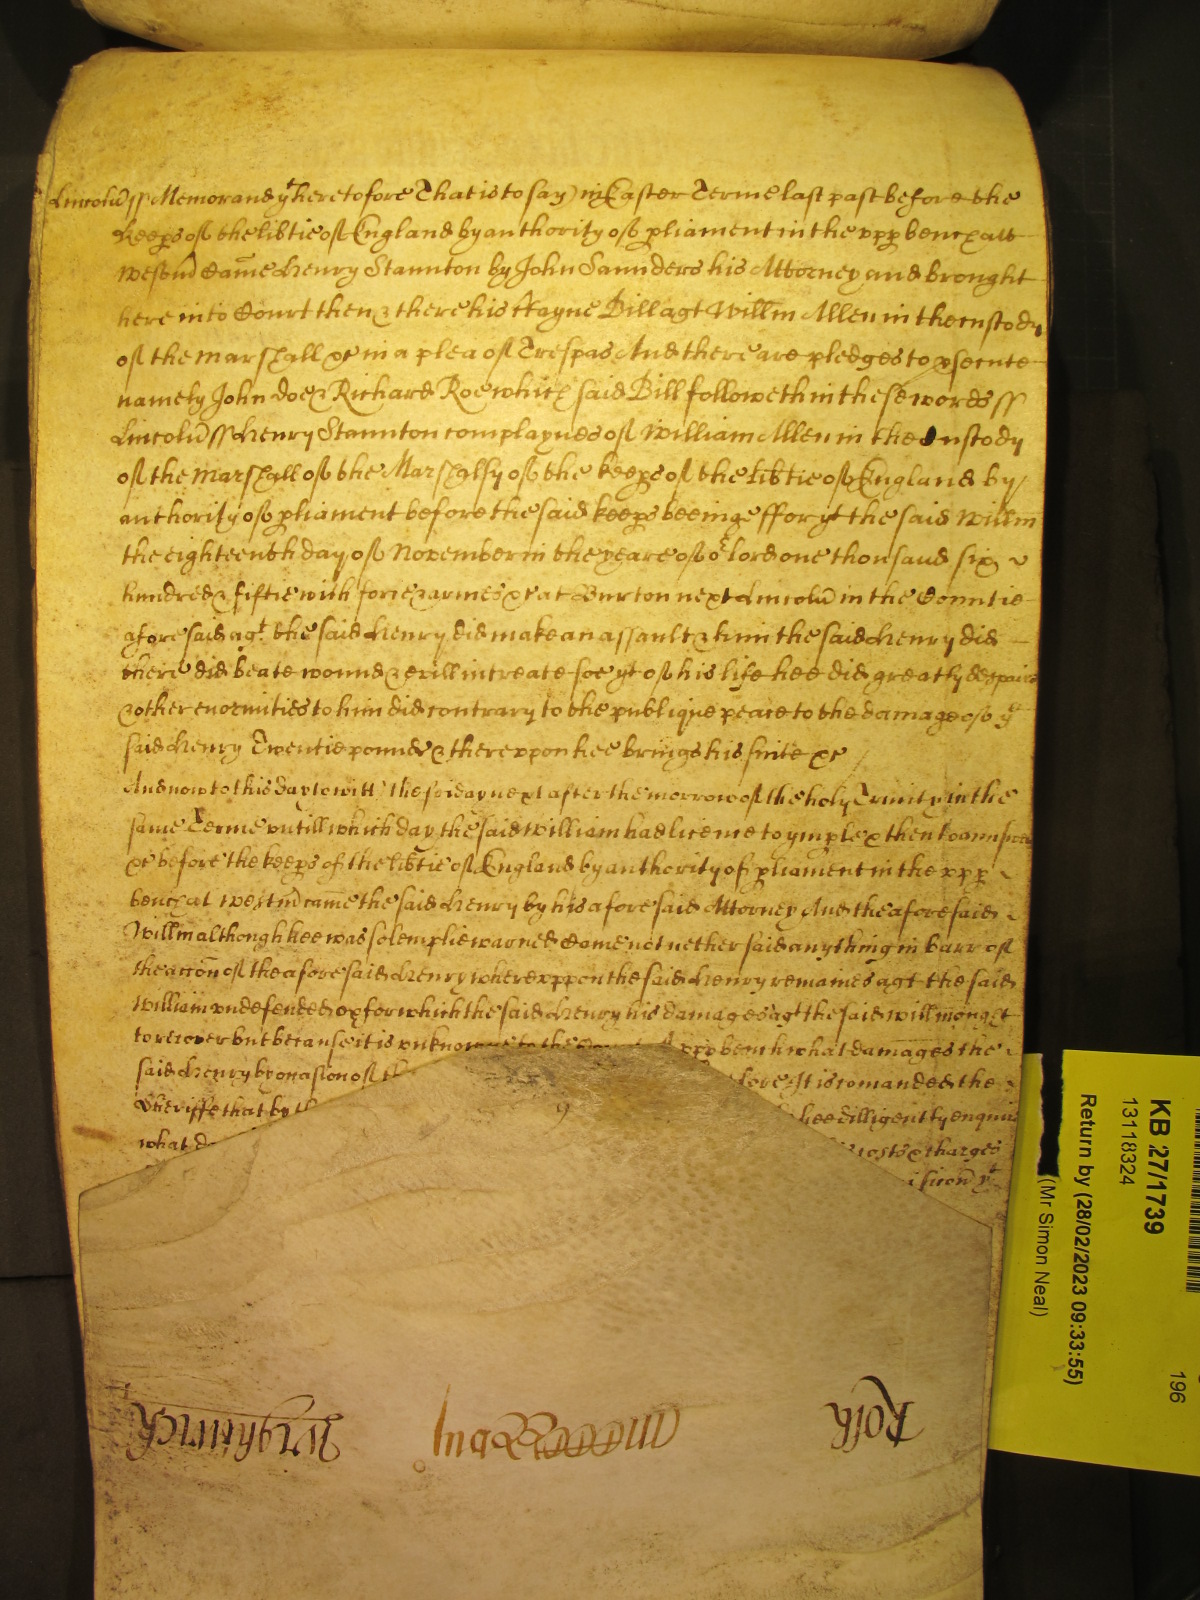 Lincoln ss Memorand yt heretofore That is to say in Easter Terme last past before the
keeps of the libtie of England by authority of pliament in the vpp bench att
Westm Came Henry Staunton by John Saunders his Attorney and brought
here into Court then & there his Bill agt Willm Allen in the custody
of the marshall &c in a plea of Trespas And there are pledges to psecute
namely John Doe & Richard Roe which said Bill followeth in these words ss
Lincoln ss Henry Staunton complaynes of William Allen in the Custody
of the marshall of the Marshalsy of the keeps of the libtie of England by
authority of pliament before the said keeps beeinge ffor yt the said Willm
the eighteenth day of November in the yeare of or lord one thousand six
hundred & fiftie with force & armes &c at Burton next Lincoln in the Countie
aforesaid agt the said Henry did make an assault & him the said Henry did
there did beate wound & evill intreate soe yt of his life hee did greatly despaire
& other enormities to him did contrary to the publique peace to the damage of ye
said Henry Twentie pounds & therevpon hee brings his suite &c
And now to this day to witt the friday next after the morrow of the holy Trinity in the
same Terme vntill which day the said William had licence to ymple & then to answer
&c before the keeps of the libtie of England by authority of pliament in the vpp
bench at Westm came the said Henry by his aforesaid Attorney And the aforesaid
Willm although hee was solemplie warned Came not nether said any thing in barr of
the accon of the aforesaid Henry wherevppon the said Henry remaines agt the said
William vndefended for which the said Henry his damages agt the said Willm ought
to recover but because it is vnknowne to the vpp bench what damages the
said Henry by occasion of It is comanded the
Sheriffe that by hee dilligently enquire
what costs & charges
yt
Roth
Wightwick
KB 27/1739
13118324
Return by (28/02/2023 09:33:55)
(Mr Simon Neal)
196